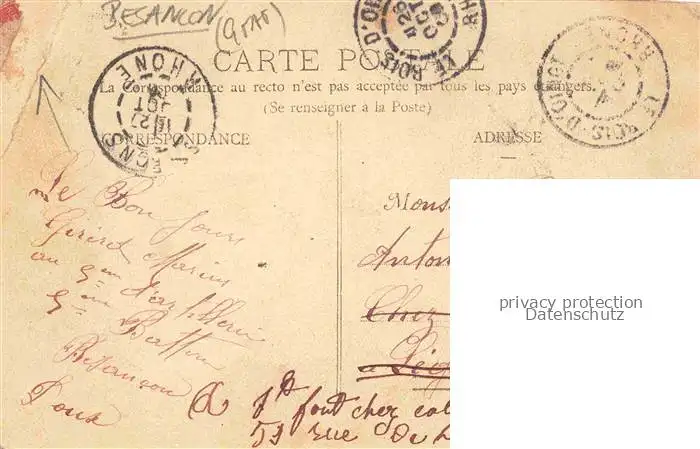 BESANÇON
CARTE POSTALE
La Correspondance au recto n'est pas acceptée par tous les pays étrangers.
(Se renseigner à la Poste)
CORRESPONDANCE
ADRESSE
LE BOIS D'OINGT
RHONE
LE BOIS D'OINGT
RHONE
Le Bonjour
Marius
au 5em d'artillerie
5em Batterie
Besançon
Doubs
Mons
Anton
Chez
à Lég
font chez
51 rue De L
privacy protection
Datenschutz